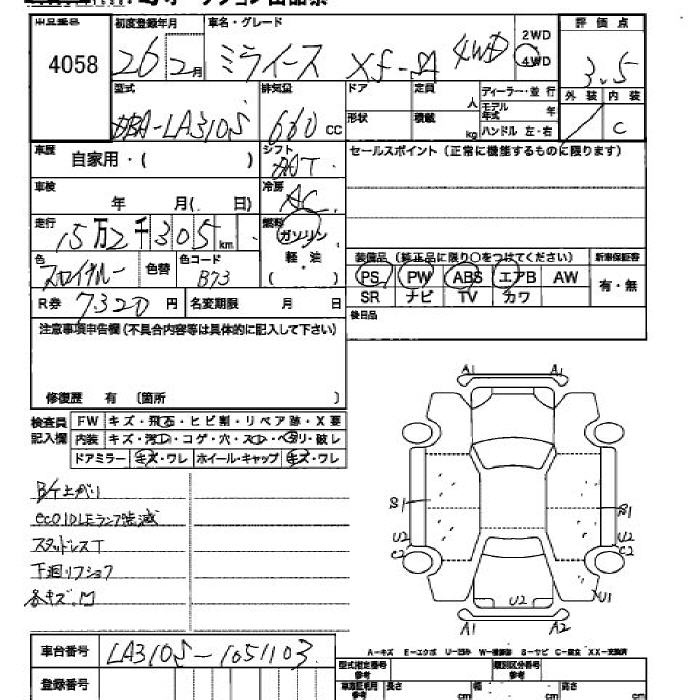 初度登録年月 車名・グレード 評価点
4058 26 2月 ミライース XF-SA 4WD 2WD 4WD 3.5
型式 排気量 ドア 定員 人 ディーラー・並行 外装 内装
DBA-LA310S 660 CC 形状 積載 kg モデル年式 年 C
ハンドル 左・右
車歴 自家用・( ) シフト AT セールスポイント(正常に機能するものに限ります)
車検 年 月( 日) 冷房 AC
走行 15万2千305km 燃料 ガソリン
軽油
( )
色 色替 色コード B73 装備品(純正品に限り○をつけてください) 新車保証書
PS PW ABS エアB AW 有・無
R券 7320円 名変期限 月 日 SR ナビ TV カワ
注意事項申告欄(不具合内容等は具体的に記入して下さい) 後日品
修復歴 有 〔箇所 〕
検査員記入欄 FW キズ・飛石・ヒビ割・リペア跡・X要
内装 キズ・汚レ・コゲ・穴・スレ・ヘタリ・破レ
ドアミラー キズ・ワレ ホイール・キャップ キズ・ワレ
A1 A1
S1 S1
U2 U2
C2 C2
U2 U1
A1 A2
B/T上がり
eco IDLEランプ点滅
スタッドレスT
下廻リフショク
各キズ.凹
A-キズ E-エクボ U-凹み W-補修跡 S-サビ C-腐食 XX-交換済
車台番号 LA310S-1051103
型式指定番号 参考 類別区分番号 参考
登録番号 長さ cm 幅 cm 高さ cm